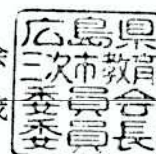 広島県
三次市教育
委員会
委員長